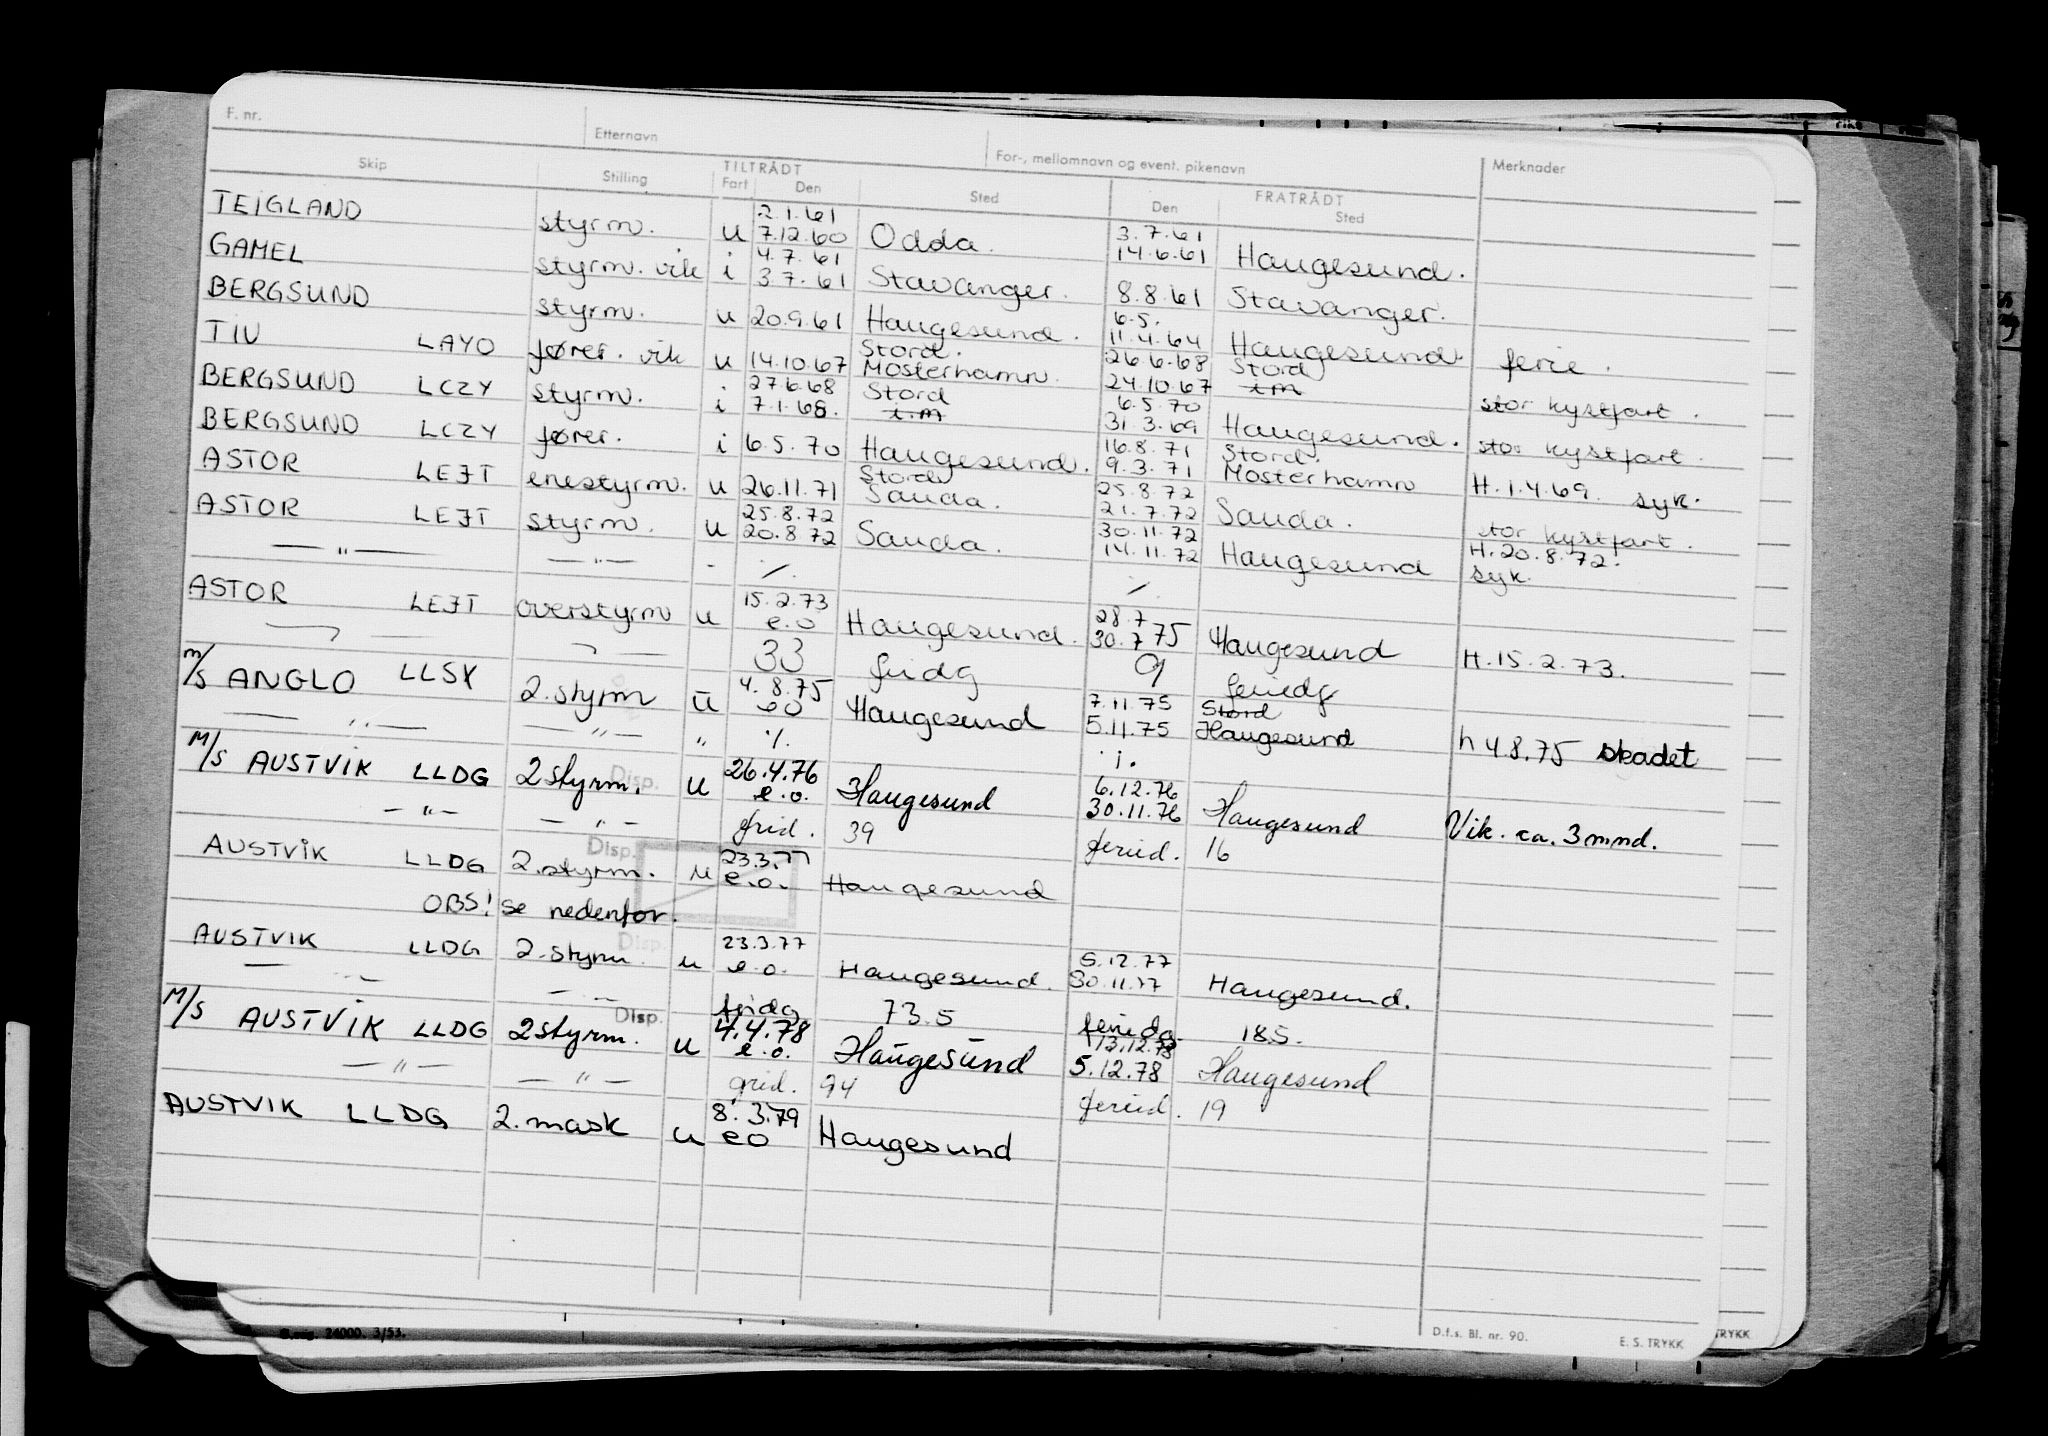 F. nr.
Etternavn
For-, mellomnavn og event. pikenavn
Merknader
Skip Stilling TILTRÅDT Fart Den Sted FRATRÅDT Den Sted
TEIGLAND styrm. u 2.1.61 7.12.60 Odda. 3.7.61 14.6.61 Haugesund.
GAMEL styrm. vik i 4.7.61 3.7.61 Stavanger. 8.8.61 Stavanger.
BERGSUND styrm. u 20.9.61 Haugesund. 6.5. 11.4.64 Haugesund. ferie.
TIU LAYO fører. vik u 14.10.67 Stord. Mosterhamn. 26.6.68 24.10.67 Stord i.m stor kystfart.
BERGSUND LCZY styrm. i 27.6.68 7.1.68. Stord i.m 6.5.70 31.3.69 Haugesund. stor kystfart.
BERGSUND LCZY fører. i 6.5.70 Haugesund. 16.8.71 9.3.71 Stord. Mosterhamn H.1.4.69. syk.
ASTOR LEJT enestyrm. u 26.11.71 Stord Sauda. 25.8.72 21.7.72 Sauda. stor kystfart.
ASTOR LEJT styrm. u 25.8.72 20.8.72 Sauda. 30.11.72 14.11.72 Haugesund H.20.8.72. syk.
— " — — " — - ./. ./.
ASTOR LEJT overstyrm u 15.2.73 e.o Haugesund. 28.7 30.7.75 Haugesund H.15.2.73.
33 fridg 9 feriedg
M/S ANGLO LLSX 2.styrm u 4.8.75 eo Haugesund 7.11.75 5.11.75 Stord Haugesund h 4.8.75 skadet
— " — — " — " ./. ./.
M/S AUSTVIK LLDG 2styrm. Disp. u 26.4.76 e.o. Haugesund 6.12.76 30.11.76 Haugesund Vik. ca. 3 mnd.
— " — — " — frid. 39 feried. 16
AUSTVIK LLDG 2.styrm. Disp. u 23.3.77 e.o. Haugesund
OBS! se nedenfor.
AUSTVIK LLDG 2.styrm Disp. u 23.3.77 e.o. Haugesund. 5.12.77 30.11.77 Haugesund.
— " — — " — fridg 73.5 feriedg 18.5.
M/S AUSTVIK LLDG 2styrm. Disp. u 4.4.78 e.o. Haugesund 13.12.78 5.12.78 Haugesund
— " — — " — frid. 94 feried. 19
AUSTVIK LLDG 2.mask u 8.3.79 eo Haugesund
D.f.s. Bl. nr. 90. E. S. TRYKK
TRYKK
24000. 3/53.